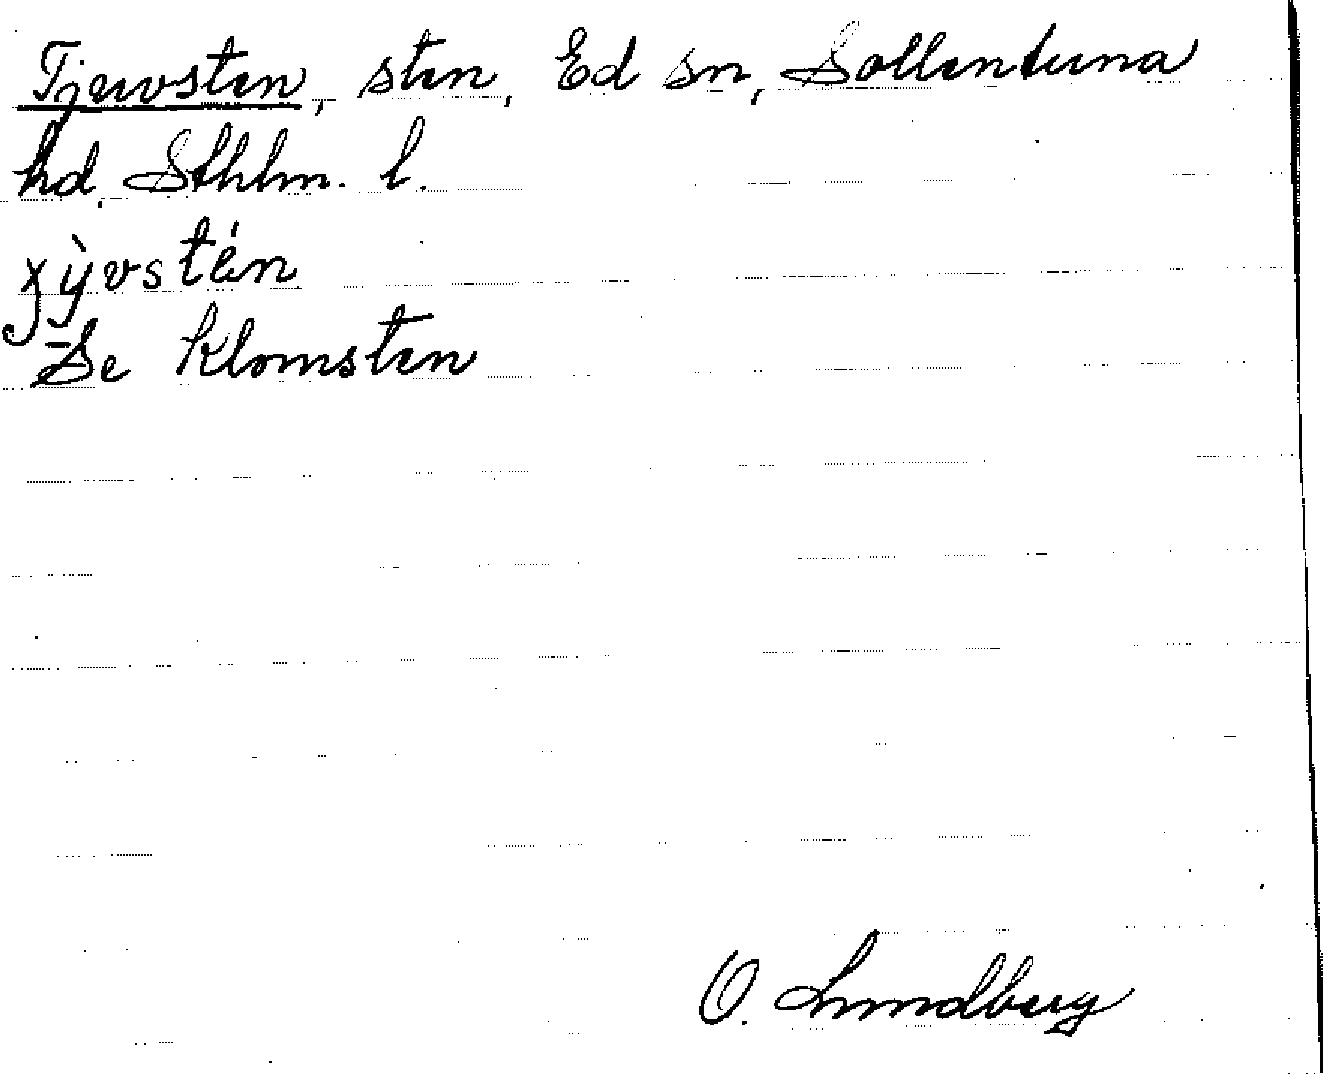 Tjuvsten, sten, Ed sn, Sollentuna
hd, Sthlm. l.
Se Klomsten
O. Lundberg